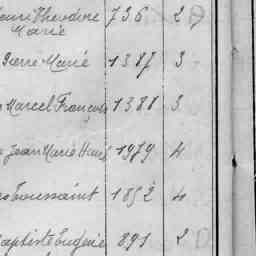 Theodore 736 2
Marie
Pierre Marie 1387 3
Marcel François 1388 3
Jean Marie 1979 4
Toussaint 1852 4
Baptiste Eugène 891 2